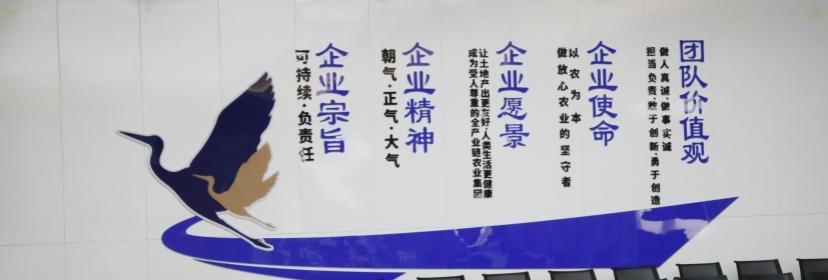 团队价值观
做人真诚、做事实诚
担当负责、敢于创新、勇于创造
企业使命
以农为本
做放心农业的坚守者
企业愿景
让土地产出更友好·人类生活更健康
成为受人尊重的全产业链农业集团
企业精神
朝气·正气·大气
企业宗旨
可持续·负责任